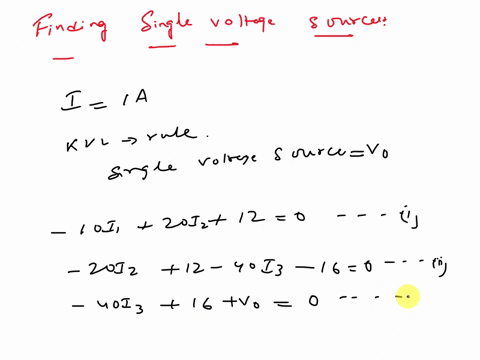 Finding Single voltage source:
I = 1A
KVL → rule.
Single voltage source = V₀
- 10I₁ + 20I₂ + 12 = 0 ---- (i)
- 20I₂ + 12 - 40I₃ - 16 = 0 ---- (ii)
- 40I₃ + 16 + V₀ = 0 -- - --